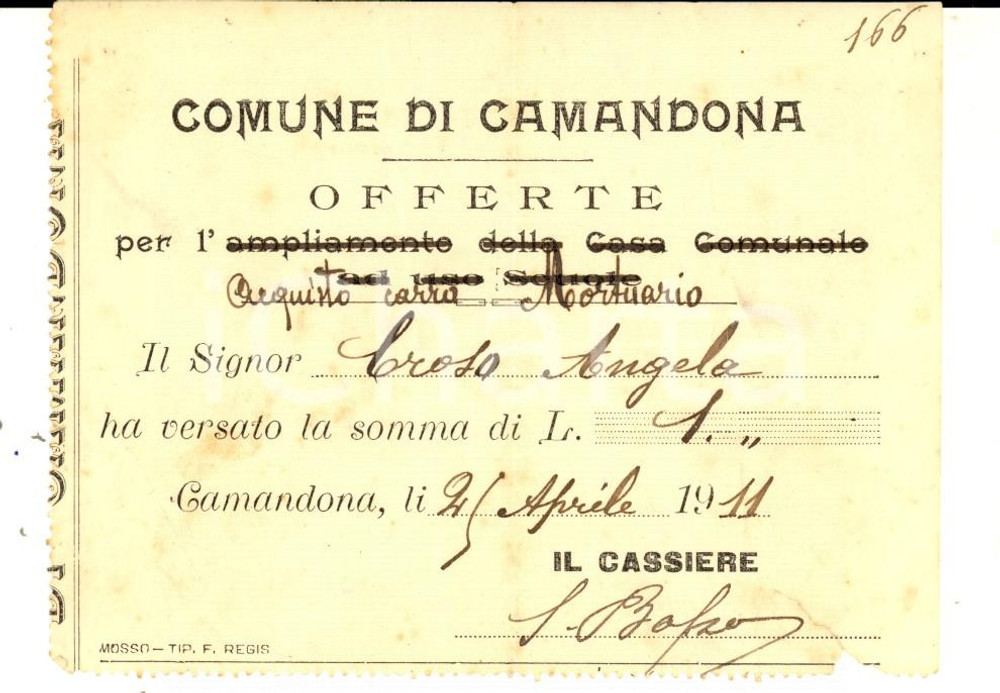 166
COMUNE DI CAMANDONA
OFFERTE
per l' ampliamento della Casa Comunale
ad uso Scuole
Acquisto carro Mortuario
Il Signor Croso Angela
ha versato la somma di L. 1. „
Camandona, li 25 Aprile 1911
IL CASSIERE
MOSSO — TIP. F. REGIS